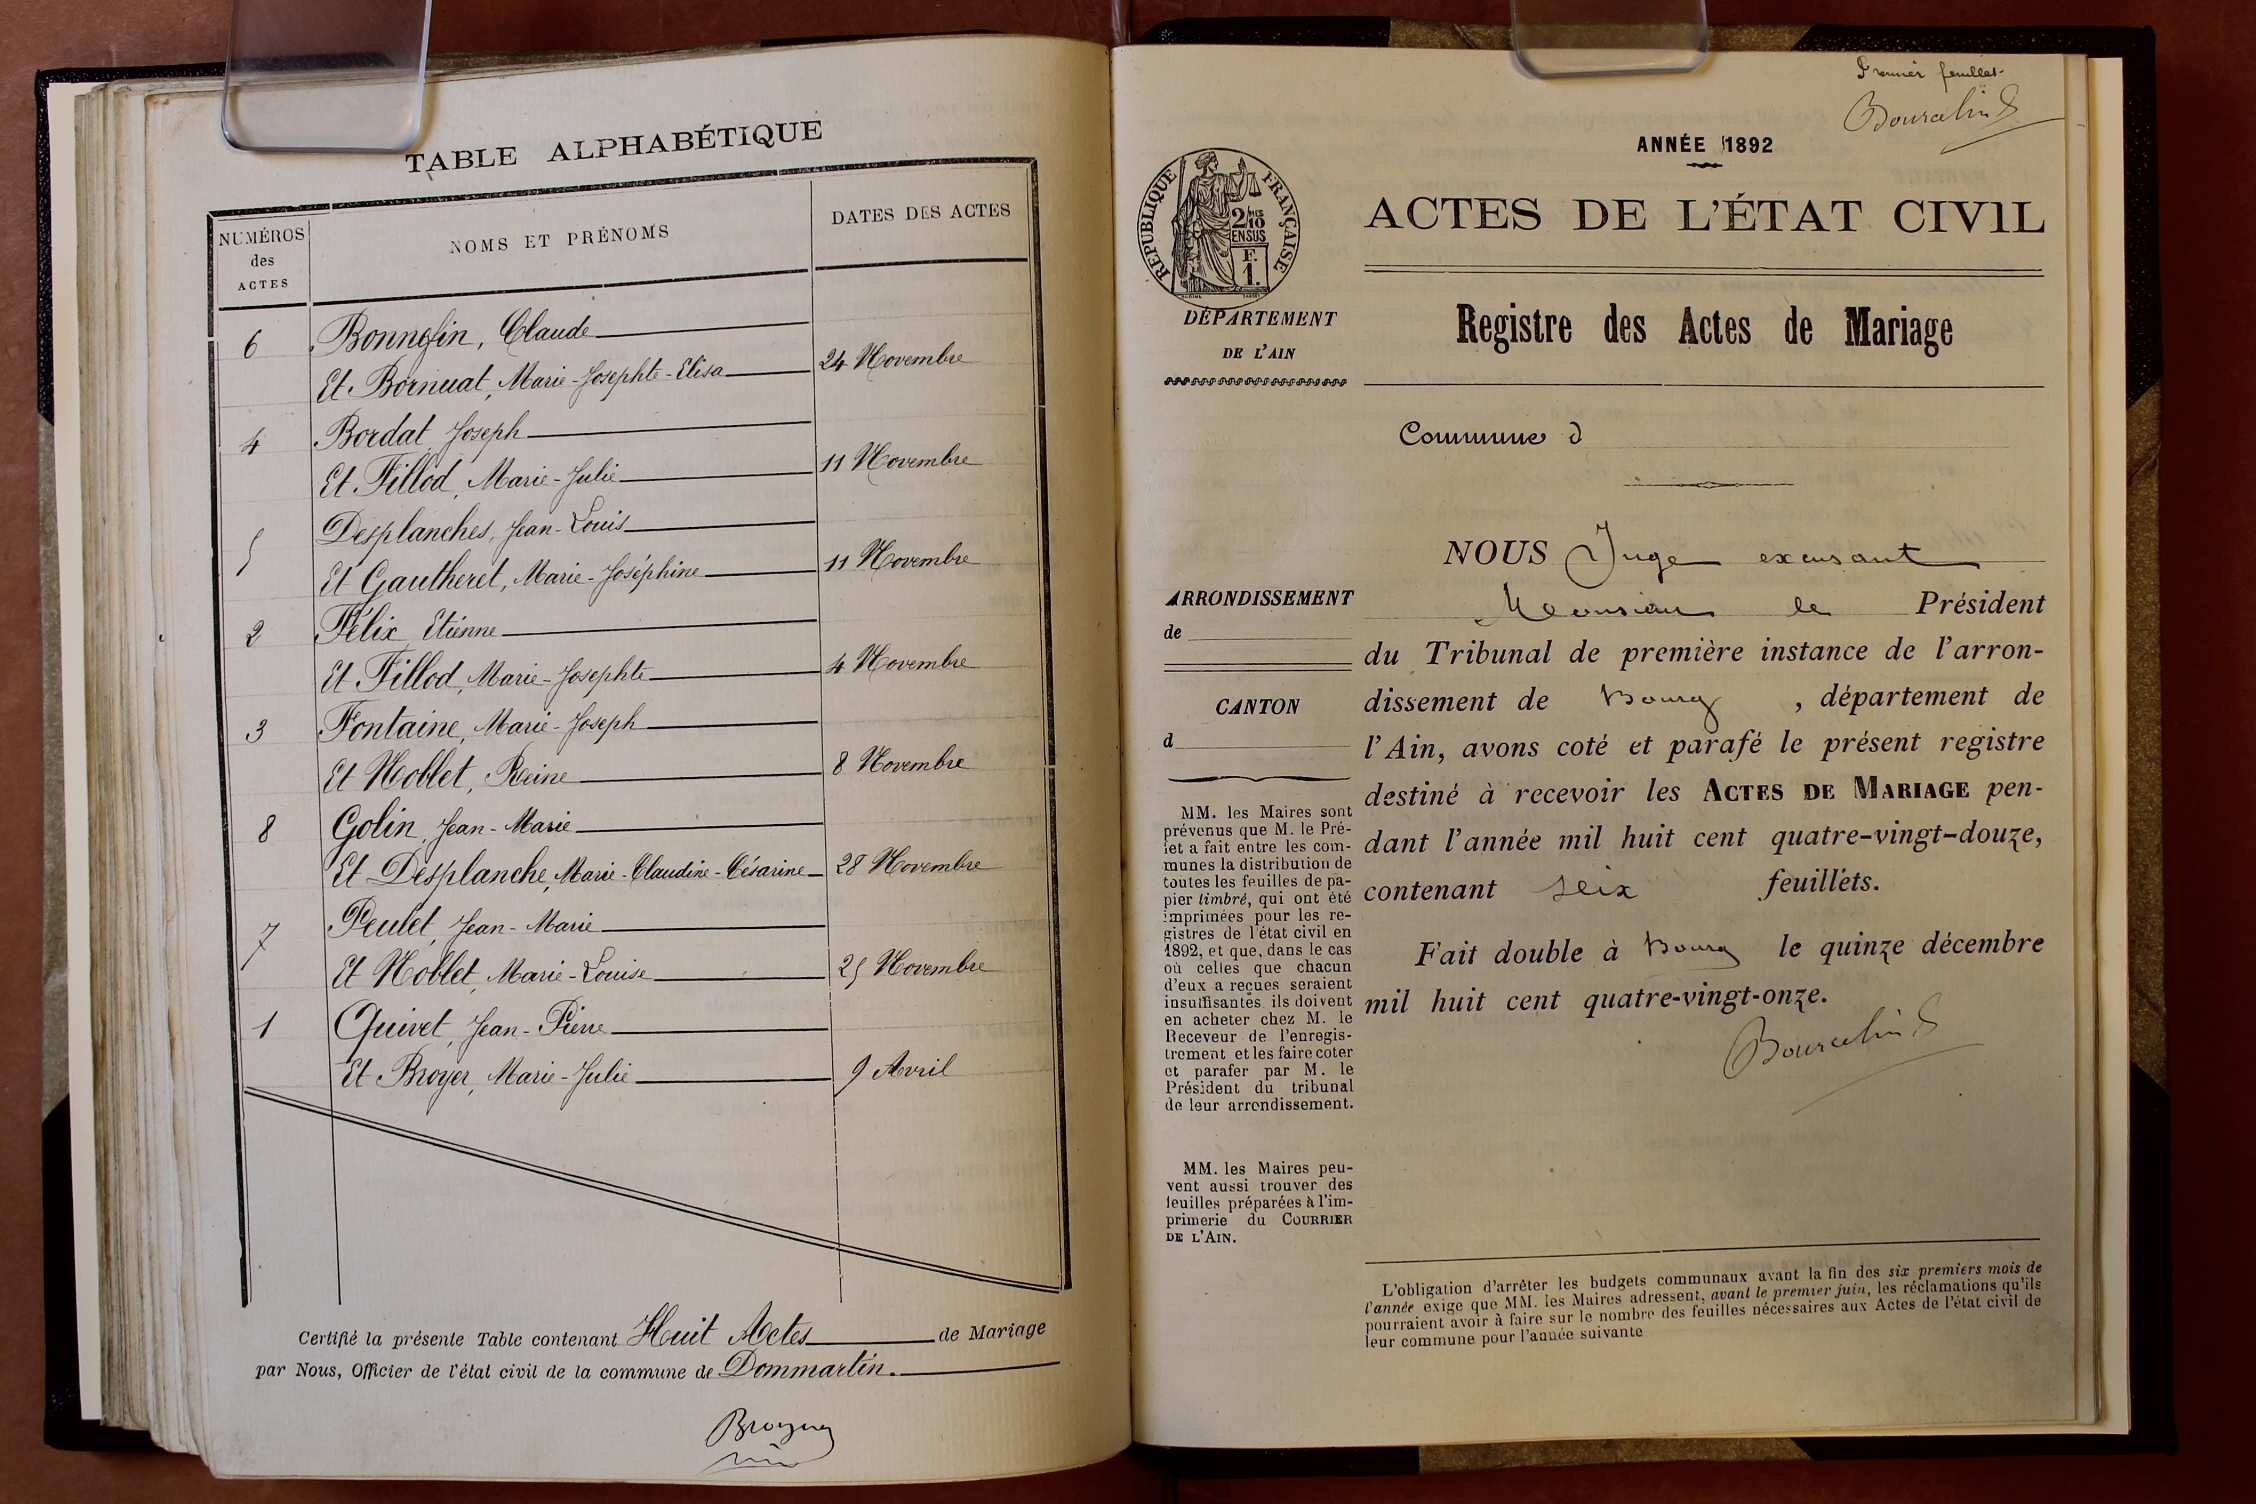 TABLE ALPHABÉTIQUE
NUMÉROS des ACTES
NOMS ET PRÉNOMS
DATES DES ACTES
6 Bonnefin, Claude
Et Bornuat, Marie-Josephte-Elisa 24 Novembre
4 Bordat Joseph
Et Fillod, Marie-Julie 11 Novembre
5 Desplanches, Jean-Louis
Et Gautheret, Marie-Joséphine 11 Novembre
2 Félix Etienne
Et Fillod, Marie-Josephte 4 Novembre
3 Fontaine, Marie-Joseph
Et Noblet, Reine 8 Novembre
8 Golin, Jean-Marie
Et Desplanche, Marie-Claudine-Césarine 28 Novembre
7 Peulet, Jean-Marie
Et Noblet, Marie-Louise 25 Novembre
1 Quivet, Jean-Pierre
Et Broyer, Marie-Julie 9 Avril
Certifié la présente Table contenant Huit Actes de Mariage
par Nous, Officier de l'état civil de la commune de Dommartin.
Broyer
Premier feuillet
Bourcelin
ANNÉE 1892
RÉPUBLIQUE FRANÇAISE
2/10
EN SUS
F.
1.
ACTES DE L'ÉTAT CIVIL
DÉPARTEMENT
DE L'AIN
Registre des Actes de Mariage
Commune d
NOUS Juge excusant
Monsieur le Président
du Tribunal de première instance de l'arron-
dissement de Bourg, département de
l'Ain, avons coté et parafé le présent registre
destiné à recevoir les ACTES DE MARIAGE pen-
dant l'année mil huit cent quatre-vingt-douze,
contenant seix feuillets.
Fait double à Bourg le quinze décembre
mil huit cent quatre-vingt-onze.
Bourcelin
ARRONDISSEMENT
de
CANTON
d
MM. les Maires sont
prévenus que M. le Pré-
fet a fait entre les com-
munes la distribution de
toutes les feuilles de pa-
pier timbré, qui ont été
imprimées pour les re-
gistres de l'état civil en
1892, et que, dans le cas
où celles que chacun
d'eux a reçues seraient
insuffisantes, ils doivent
en acheter chez M. le
Receveur de l'enregis-
trement et les faire coter
et parafer par M. le
Président du tribunal
de leur arrondissement.
MM. les Maires peu-
vent aussi trouver des
feuilles préparées à l'im-
primerie du COURRIER
DE L'AIN.
L'obligation d'arrêter les budgets communaux avant la fin des six premiers mois de
l'année exige que MM. les Maires adressent, avant le premier juin, les réclamations qu'ils
pourraient avoir à faire sur le nombre des feuilles nécessaires aux Actes de l'état civil de
leur commune pour l'année suivante